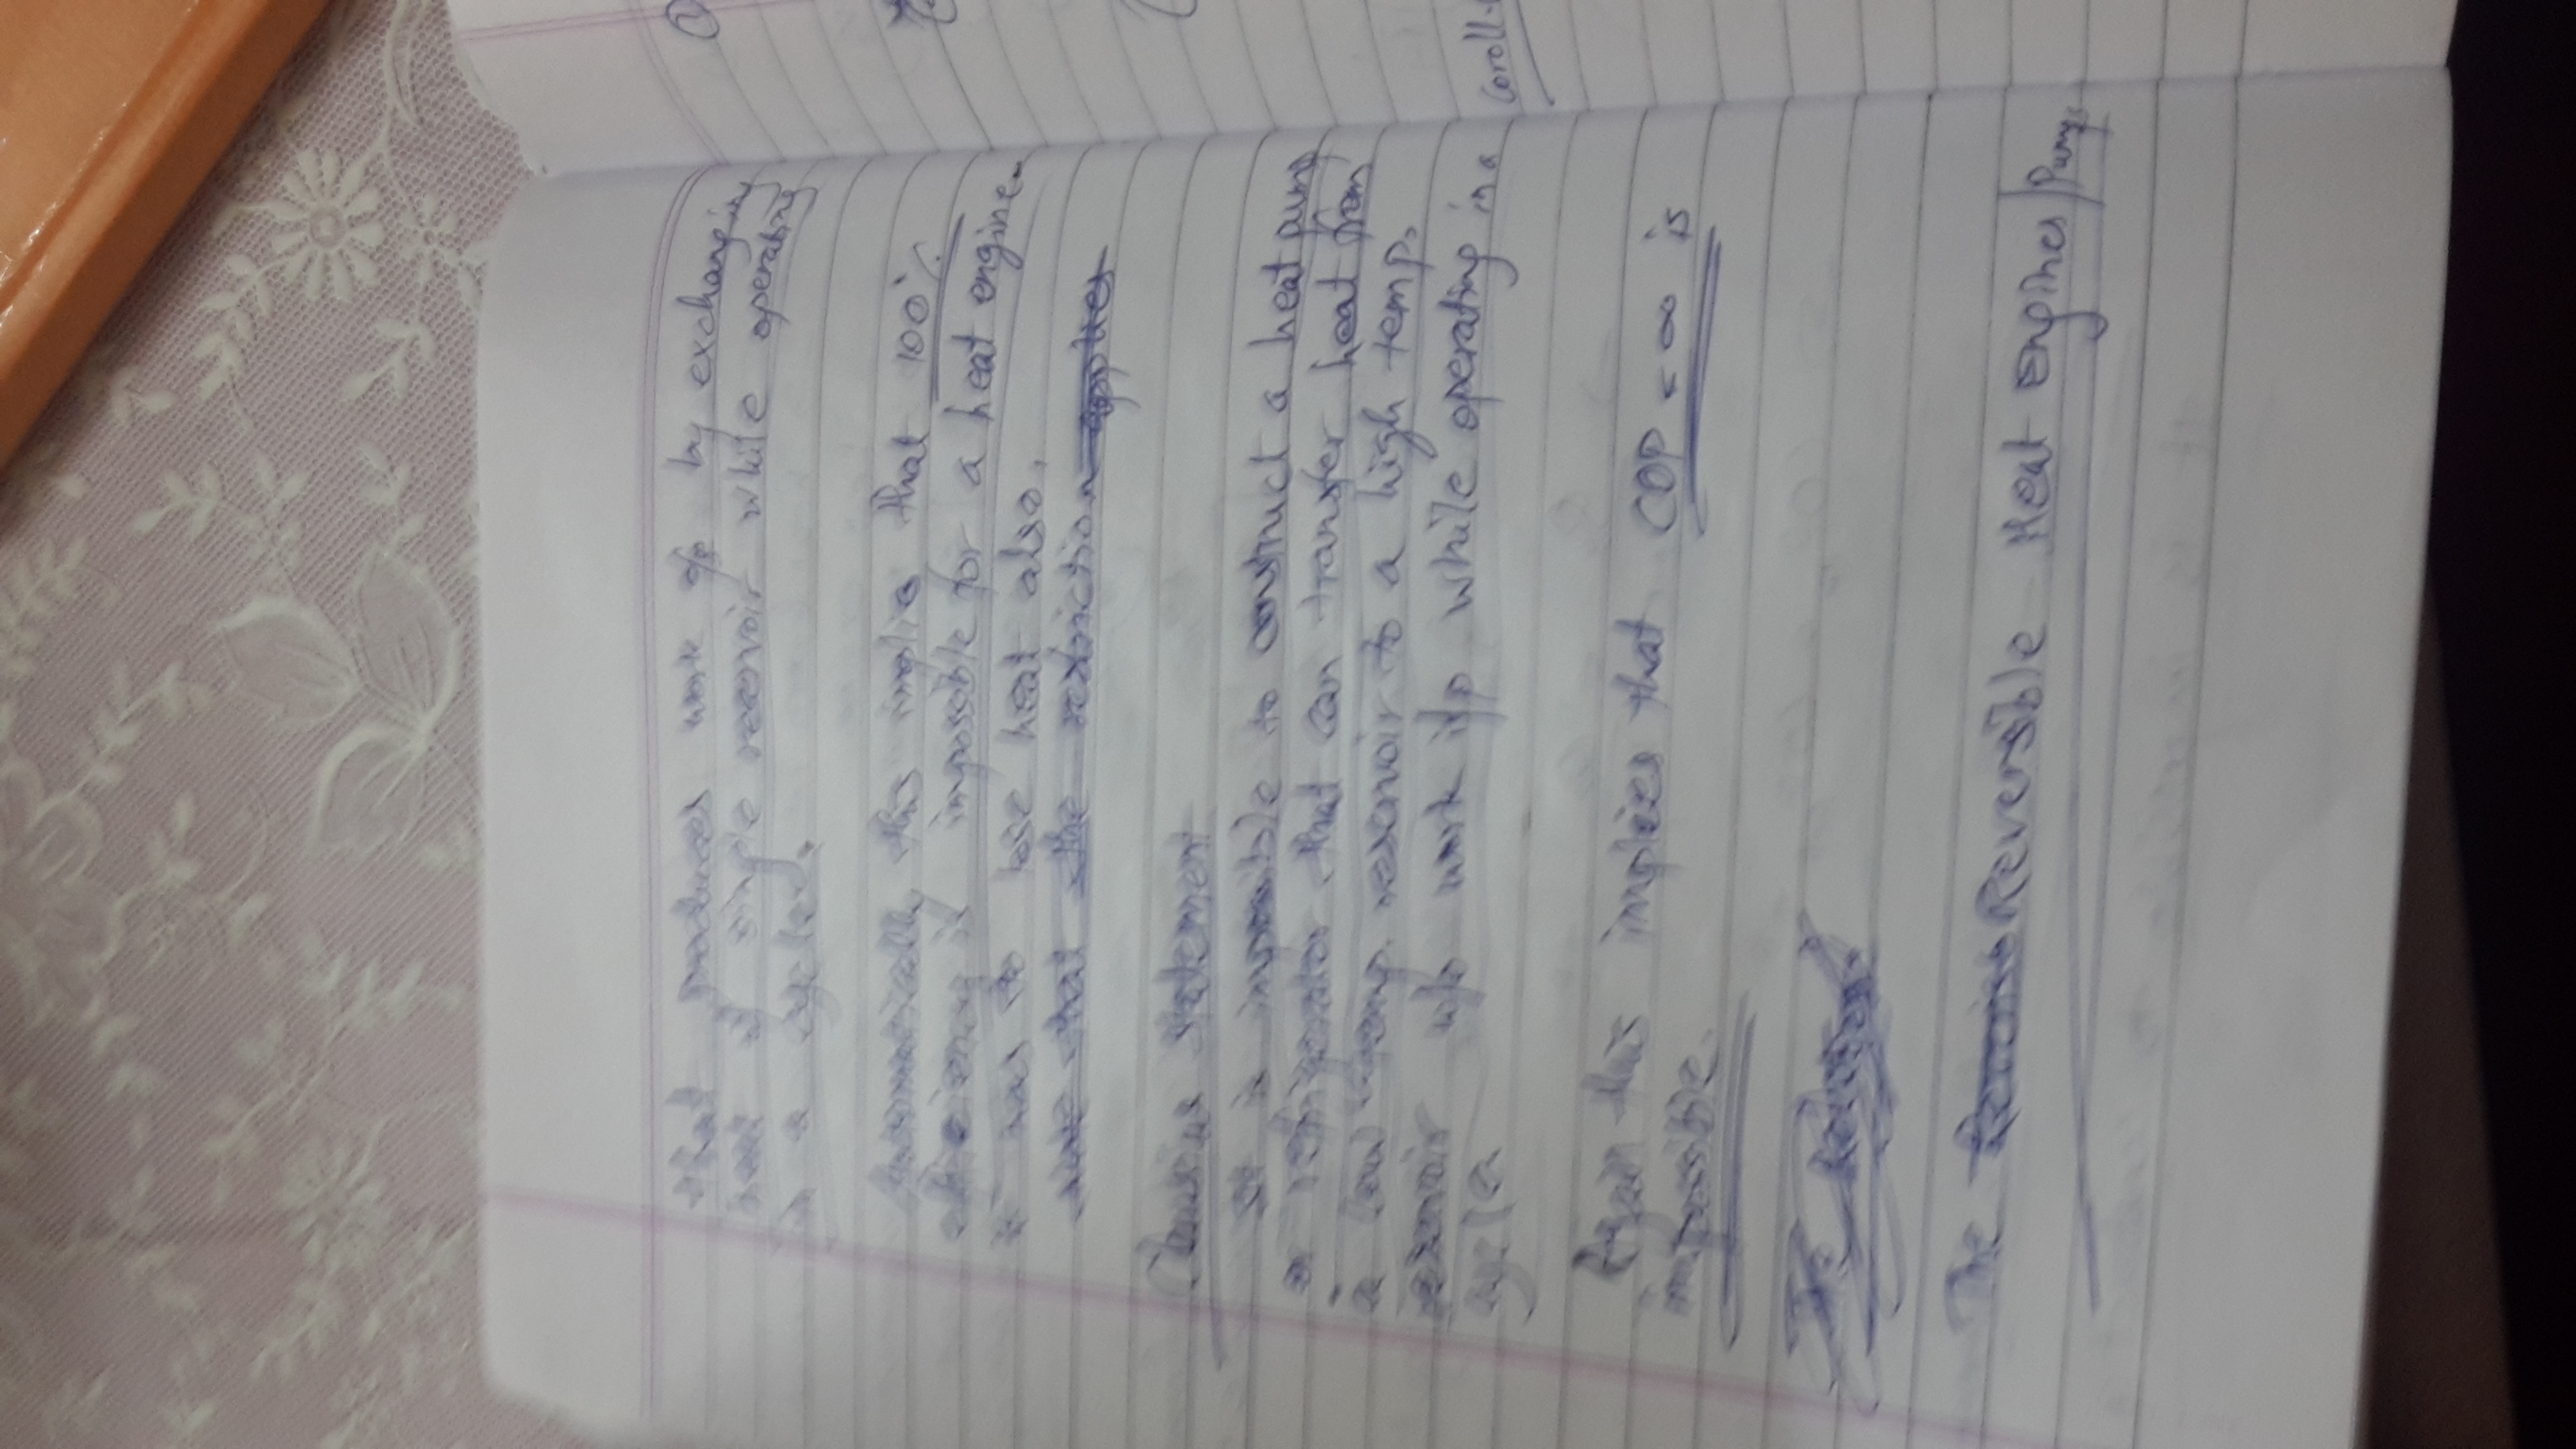 that produces work o/p by exchanging
heat of single reservoir while operating
in a cycle.
Automatically this implies that 100%
efficiency is impossible for a heat engine.
it has to lose heat also.
note that the restriction applies
Clausius statement
It is impossible to construct a heat pump
or refrigerator that can transfer heat from
a low temp. reservoir to a high temp.
reservoir w/o work i/p while operating in a
cycle.
Again this implies that COP = ∞ is
impossible.
The Reversible Heat Engines/Pumps
Coroll